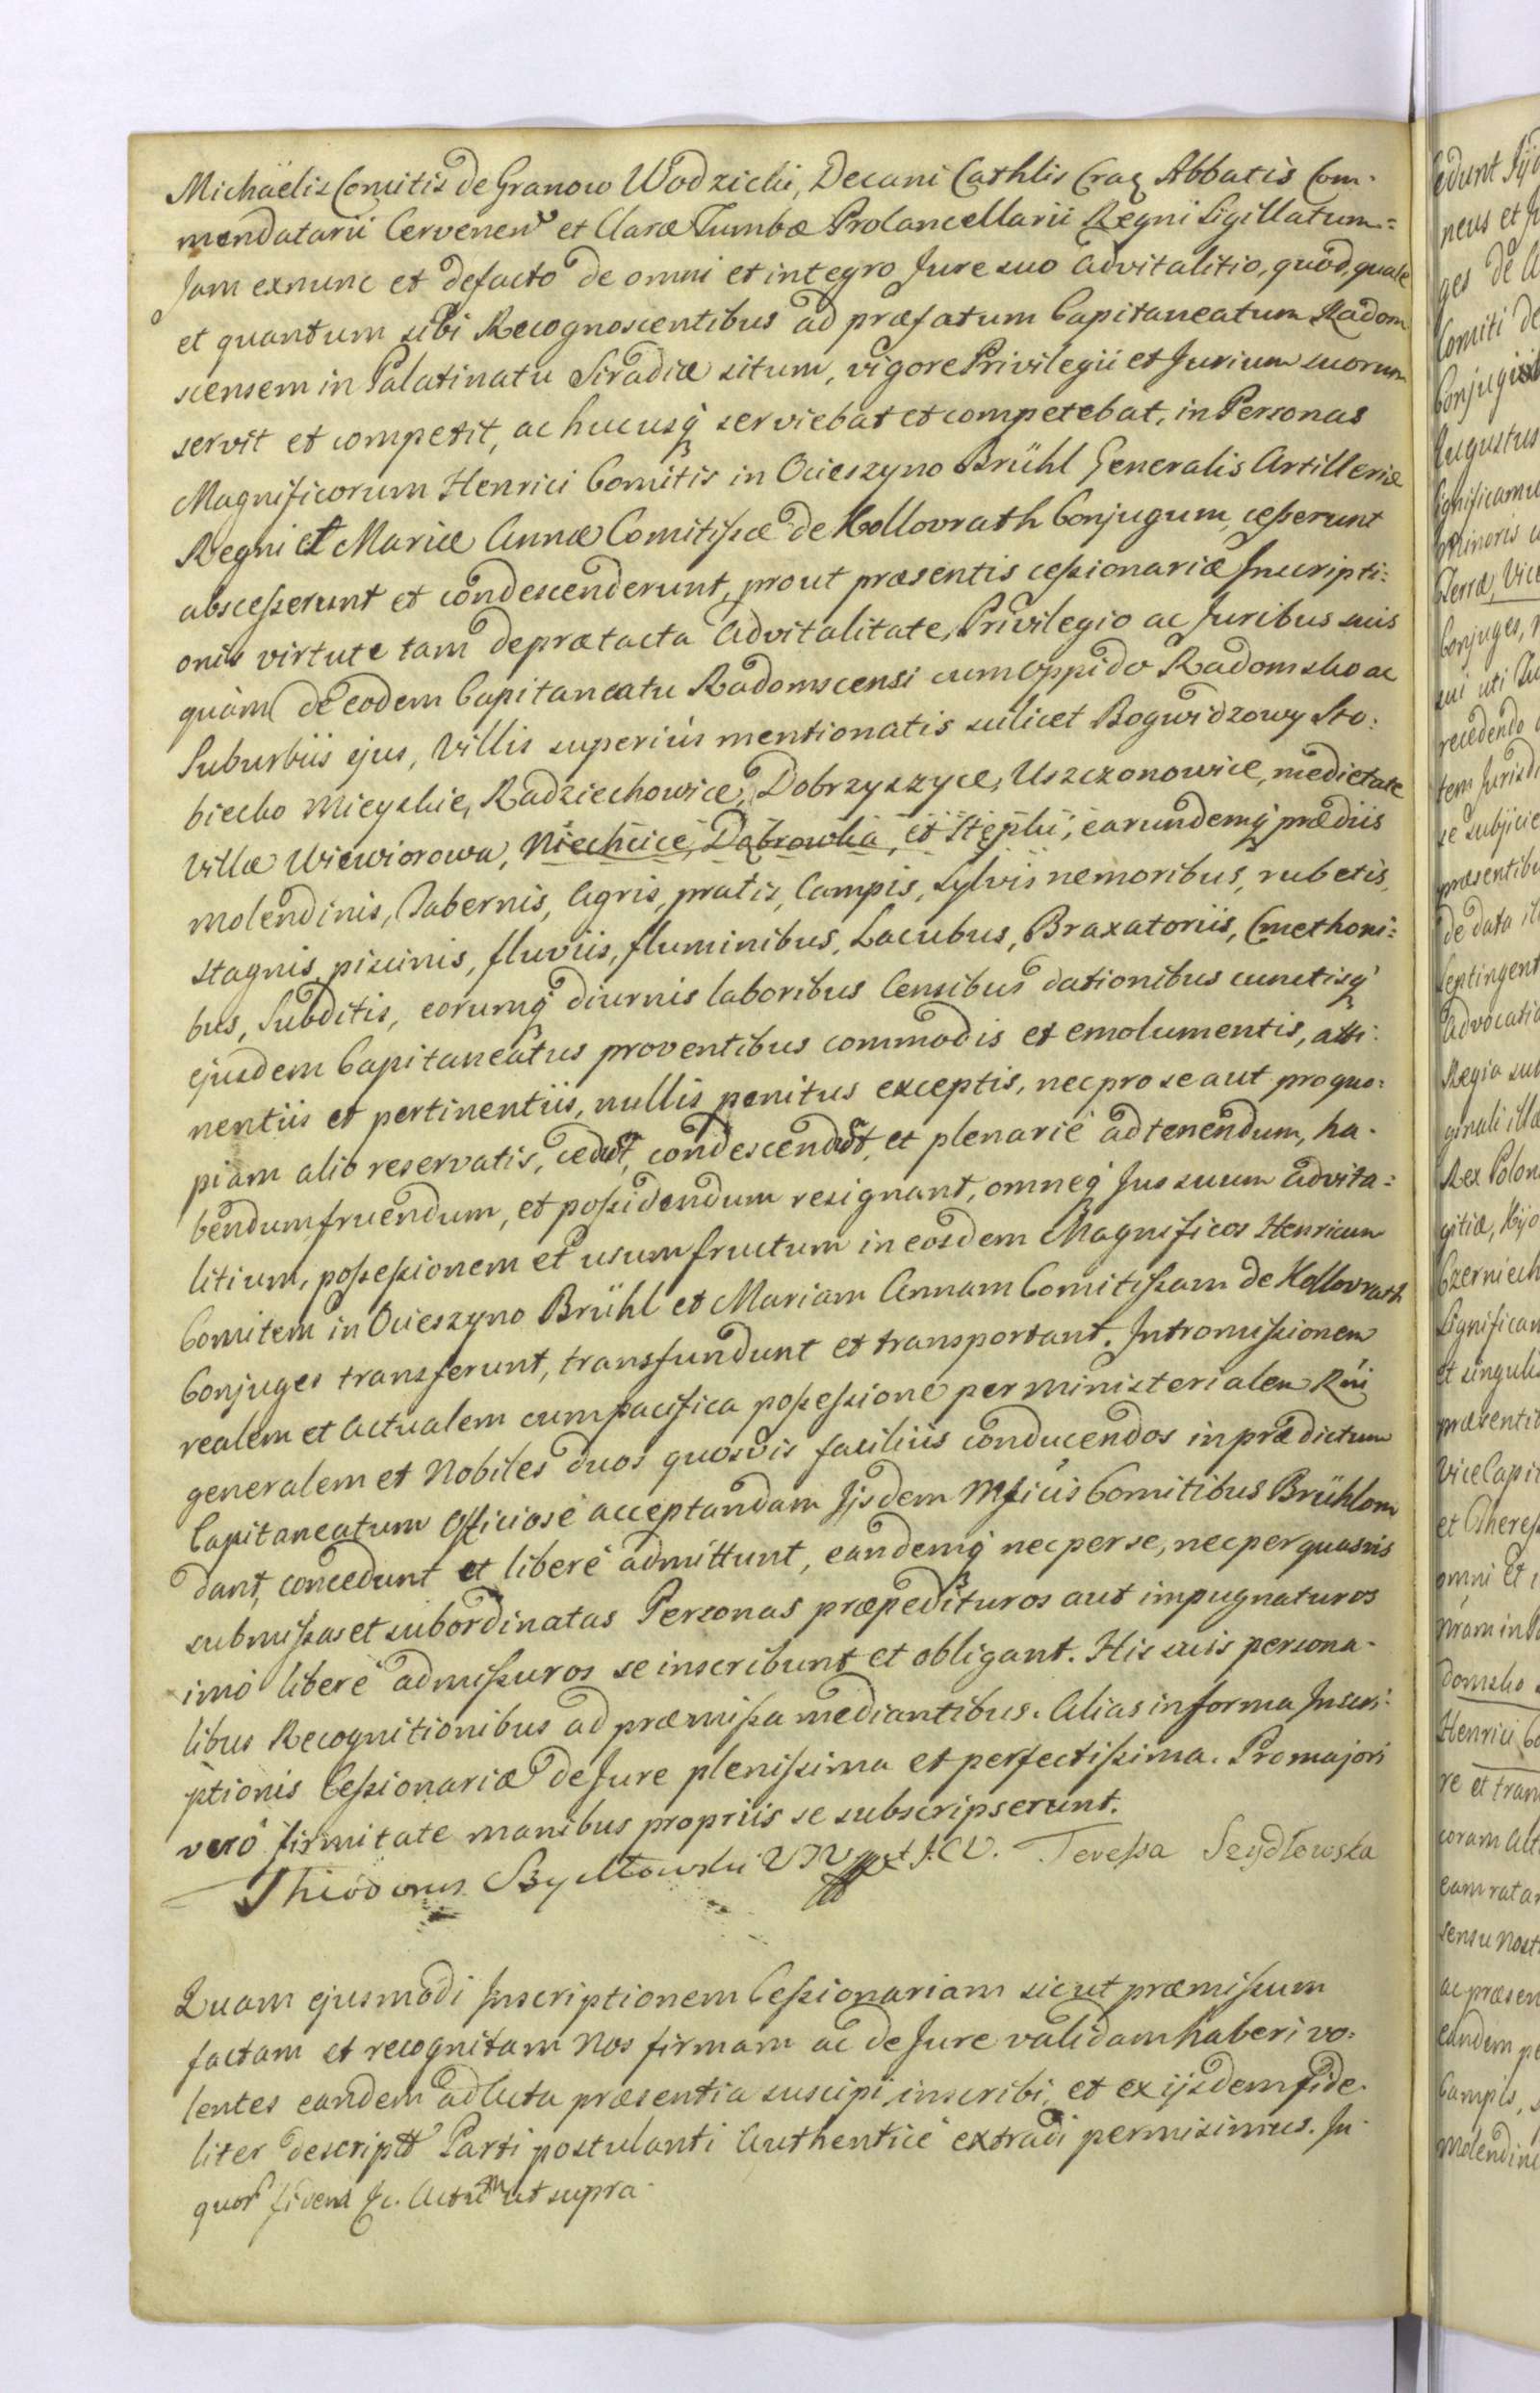 Michaëlis Comitis de Granow Wodzicki, Decani Cathlis Crac Abbatis Com-
mendatarii Cervenen et Claræ Tumbæ Procancellarii Regni Sigillatum=
Jam exnunc et defacto de omni et integro Jure suo advitalitio, quod, quale
et quantum sibi Recognoscentibus ad præfatum Capitaneatum Radom
scensem in Palatinatu Siradiæ situm, vigore Privilegii et Jurium suorum
servit et competit, ac hucusq serviebat et competebat, in Personas
Magnificorum Henrici Comitis in Ocieszyno Brühl Generalis Artilleriæ
Regni et Mariæ Annæ Comitißæ de Kollovrath Conjugum, ceßerunt
absceßerunt et condescenderunt, prout præsentis ceßionariæ Inscripti:
onis virtute tam deprætacta Advitalitate, Privilegio ac Juribus suis
quàm de eodem Capitaneatu Radomscensi cum oppido Radomsko ac
Suburbiis ejus, Villis superiùs mentionatis scilicet Bogwidzowy Sto:
biecko Mieyskie, Radziechowice, Dobrzyszyce, Uszczonowice, medietate
Villæ Wiewiorowa, Niechcice, Dąbrowka, et Stęplu, earundemq prædiis
molendinis, Tabernis, Agris, pratis, Campis, Sylvis nemoribus, rubetis,
stagnis, piscinis, fluviis, fluminibus, Lacubus, Braxatoriis, Cmethoni:
bus, Subditis, eorumq diurnis laboribus Censibus dationibus cunctisq
ejusdem Capitaneatus proventibus commodis et emolumentis, atti:
nentiis et pertinentiis, nullis penitus exceptis, nec pro se aut pro quo:
piam alio reservatis, cedut, condescendut, et plenariè ad tenendum, ha-
bendum fruendum, et poßidendum resignant, omneq Jus suum advita:
litium, poßeßionem et usumfructum in eosdem Magnificos Henricum
Comitem in Ocieszyno Brühl et Mariam Annam Comitißam de Kollovrath
Conjuges transferunt, transfundunt et transportant. Intromißionem
realem et Actualem cum pacifica poßeßione per Ministerialem Rni
generalem et Nobiles duos quosvis faciliùs conducendos in prædictum
Capitaneatum Officiosè acceptandam Ijsdem Mficis Comitibus Brühlom
dant, concedunt et liberè admittunt, eandemq nec per se, nec per quasvis
submißas et subordinatas Personas præpedituros aut impugnaturos
imò liberè admißuros se inscribunt et obligant. His suis persona-
libus Recognitionibus ad præmißa mediantibus. Alias in forma Inscri:
ptionis Ceßionariæ de Jure plenißima et perfectißima. Pro majori
verò firmitate manibus propriis se subscripserunt.
Theodorus Szydłowski Tereßa Szydłowska
Quam ejusmodi Inscriptionem Ceßionariam sicut præmißum
factam et recognitam Nos firmam ac de Jure validam haberi vo:
lentes eandem ad Acta præsentia suscipi, inscribi, et ex ijsdem fide-
liter descriptt Parti postulanti Authenticè extradi permisimus. In
quor fidem &c. Actum ut supra.